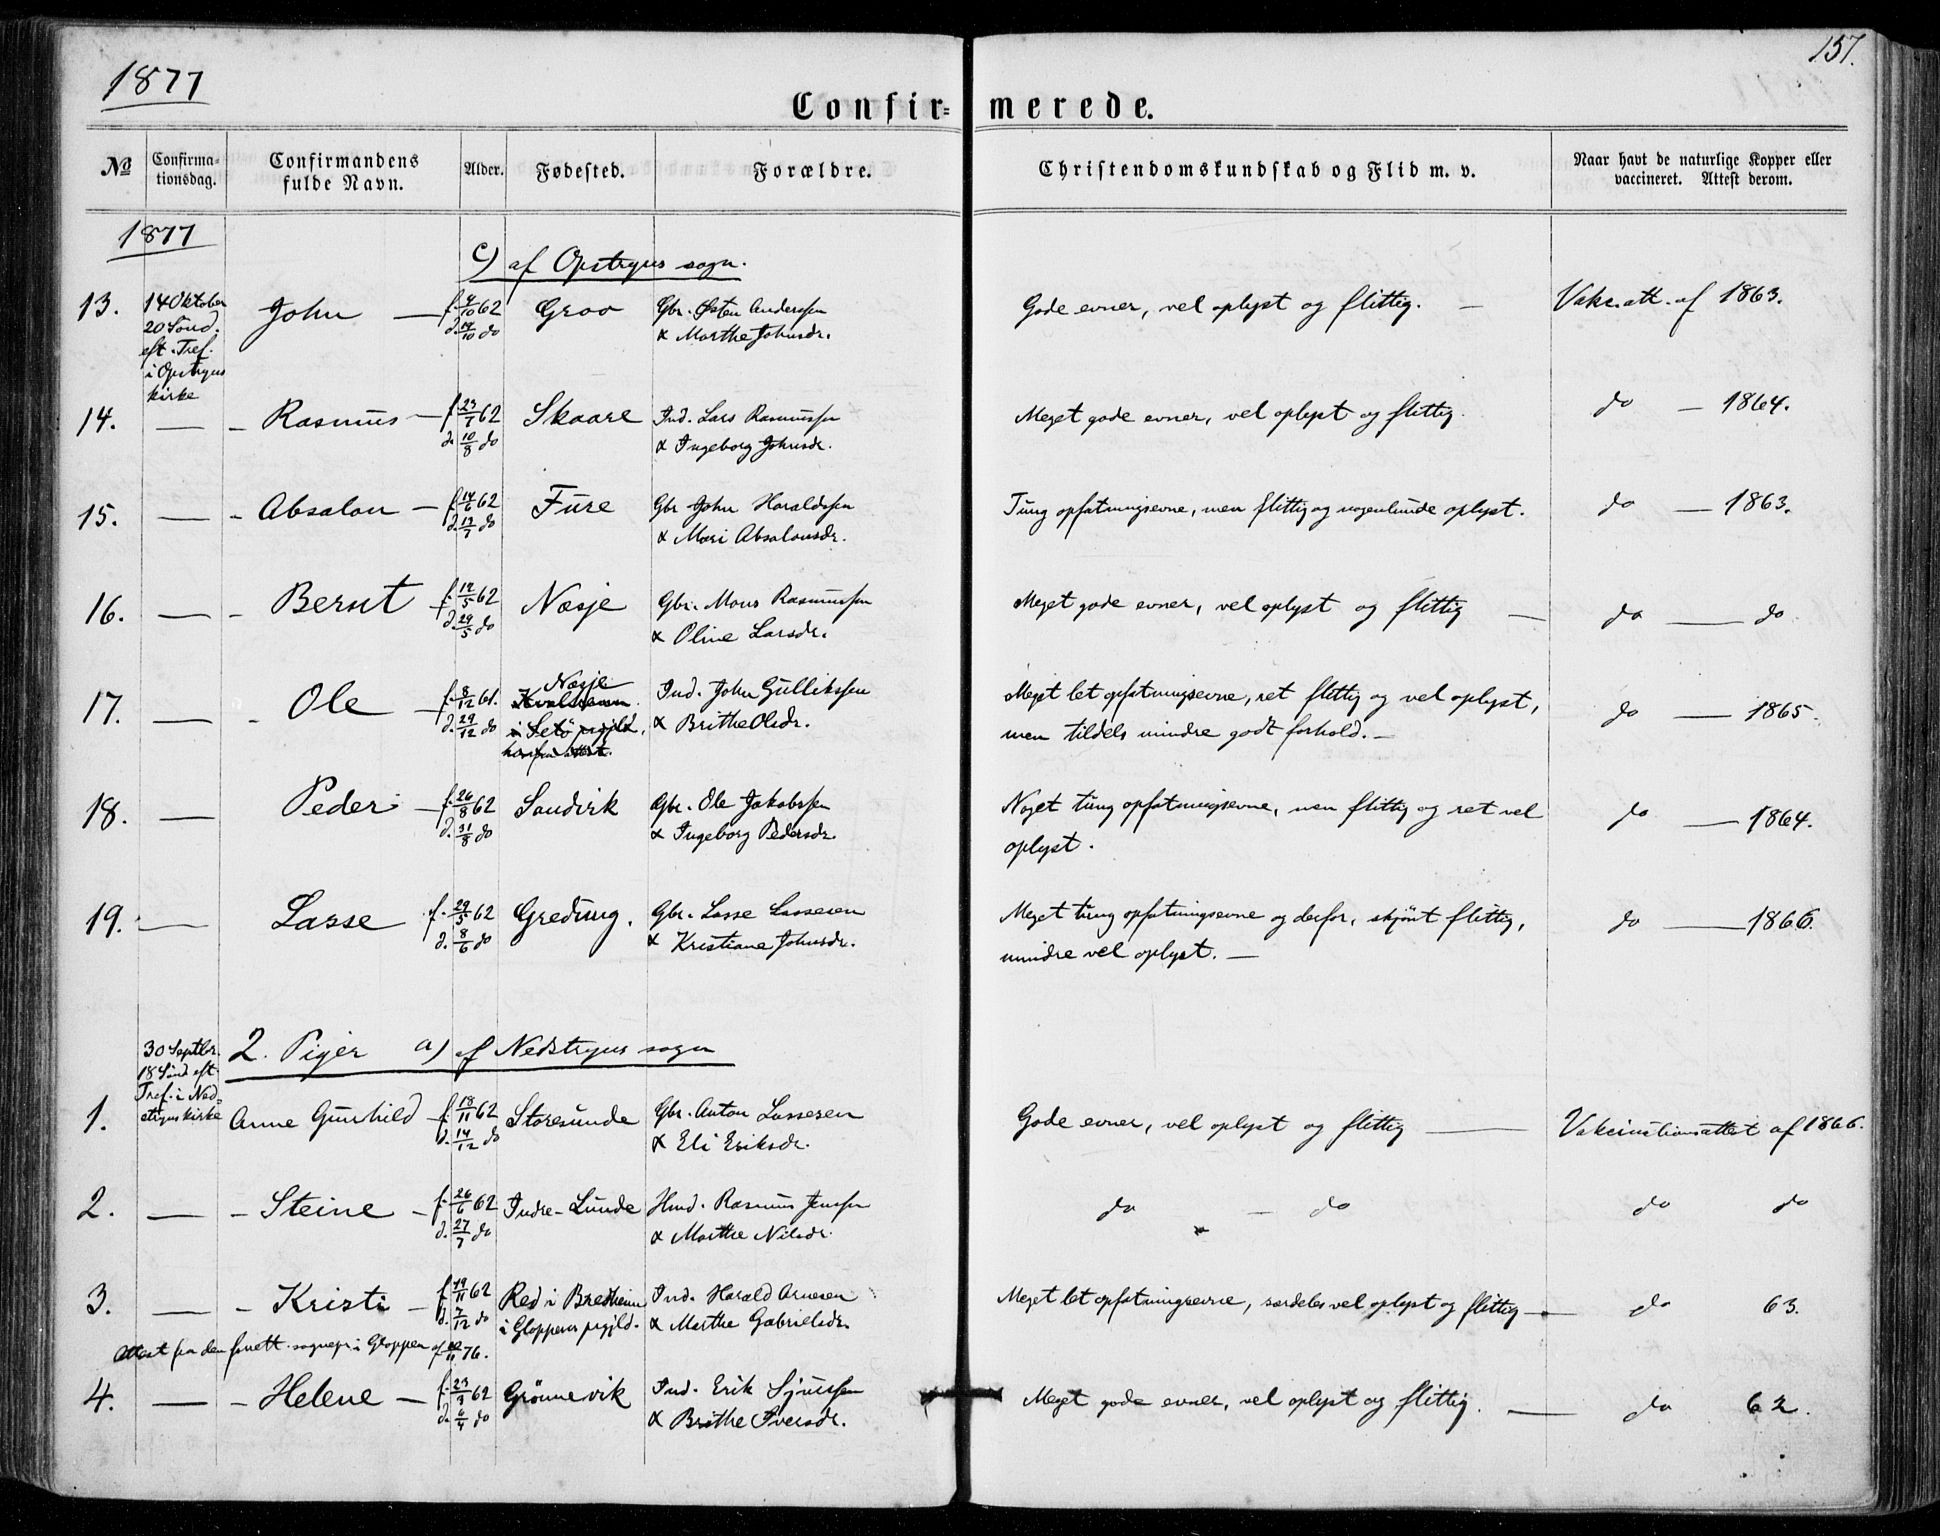 1877
157.
Confir= merede.
No
Confirma-
tionsdag.
Confirmandens
fulde Navn.
Alder.
Fødested.
Forældre.
Christendomskundskab og Flid m. v.
Naar havt de naturlige Kopper eller
vaccineret. Attest derom.
1877
c) af Opstryns sogn.
13. 14 Oktober John — f. 4/10 62 Groo Gbr. Østen Anderssen Gode evner, vel oplyst og flittig. — Vakc. att. af 1863.
20 Sönd. d. 19/10 do & Marthe Johnsdr.
eft. Tref.
i Opstryns
kirke
14. — - Rasmus — f. 23/7 62 Skaare Ind. Lars Rasmussen Meget gode evner, vel oplyst og flittig. do — 1864.
d. 10/8 do & Ingeborg Johnsdr.
15. — - Absalon — f. 14/6 62 Fure Gbr John Haraldssen Tung opfatningsevne, men flittig og nogenlunde oplyst. do — 1863.
d. 13/7 do & Mari Absalonsdr.
16. — - Bernt — f. 12/5 62 Næsje Gbr. Mons Rasmussen Meget gode evner, vel oplyst og flittig — do — do
d. 29/5 do & Oline Larsdr.
17. — - Ole — f. 8/12 61. Næsje Ind. John Gullikssen Meget let opfatningsevne, ret flittig og vel oplyst, do — 1865.
d. 29/12 do i Selö prgjld. & Brithe Olsdr. men tildels mindre godt forhold. —
18. — Peder — f. 26/8 62 Sandvik Gbr. Ole Jakobssen Noget tung opfatningsevne, men flittig og ret vel do — 1864.
d. 31/8 do & Ingeborg Pedersdr. oplyst.
19. — Lasse f. 29/5 62 Gredung. Gbr. Lasse Lassesen Meget tung opfatningsevne og derfor, skjönt flittig, do — 1866.
d. 8/6 do & Kristiane Johnsdr. mindre vel oplyst. —
30 Septbr. 2. Piger a) af Nedstryns sogn
18 Sönd eft
Tref. i Ned=
stryns kirke
1. Anne Gunhild — f. 18/11 62 Storesunde Gbr. Anton Lassesen Gode evner, vel oplyst og flittig — Vakcinationsattest af 1866.
d. 14/12 do & Eli Eriksdr.
2. — - Steine — f. 26/6 62 Indre-Lunde Hmd. Rasmus Jenssen do — do do do
d. 27/7 do & Marthe Nilsdr.
3. — - Kristi — f. 19/11 62 Red i Bredheim Ind. Harald Arnesen Meget let opfatningsevne, særdeles vel oplyst og flittig — do 63.
d. 7/12 do i Gloppens prgjld. & Marthe Gabrielsdr.
Attest fra den sognepr. i Gloppen af /11 76.
4. — - Helene — f. 23/3 62 Grönnevik Ind. Erik Sjurssen Meget gode evner, vel oplyst og flittig. — do 62.
d. 6/4 do & Brithe Iversdr.